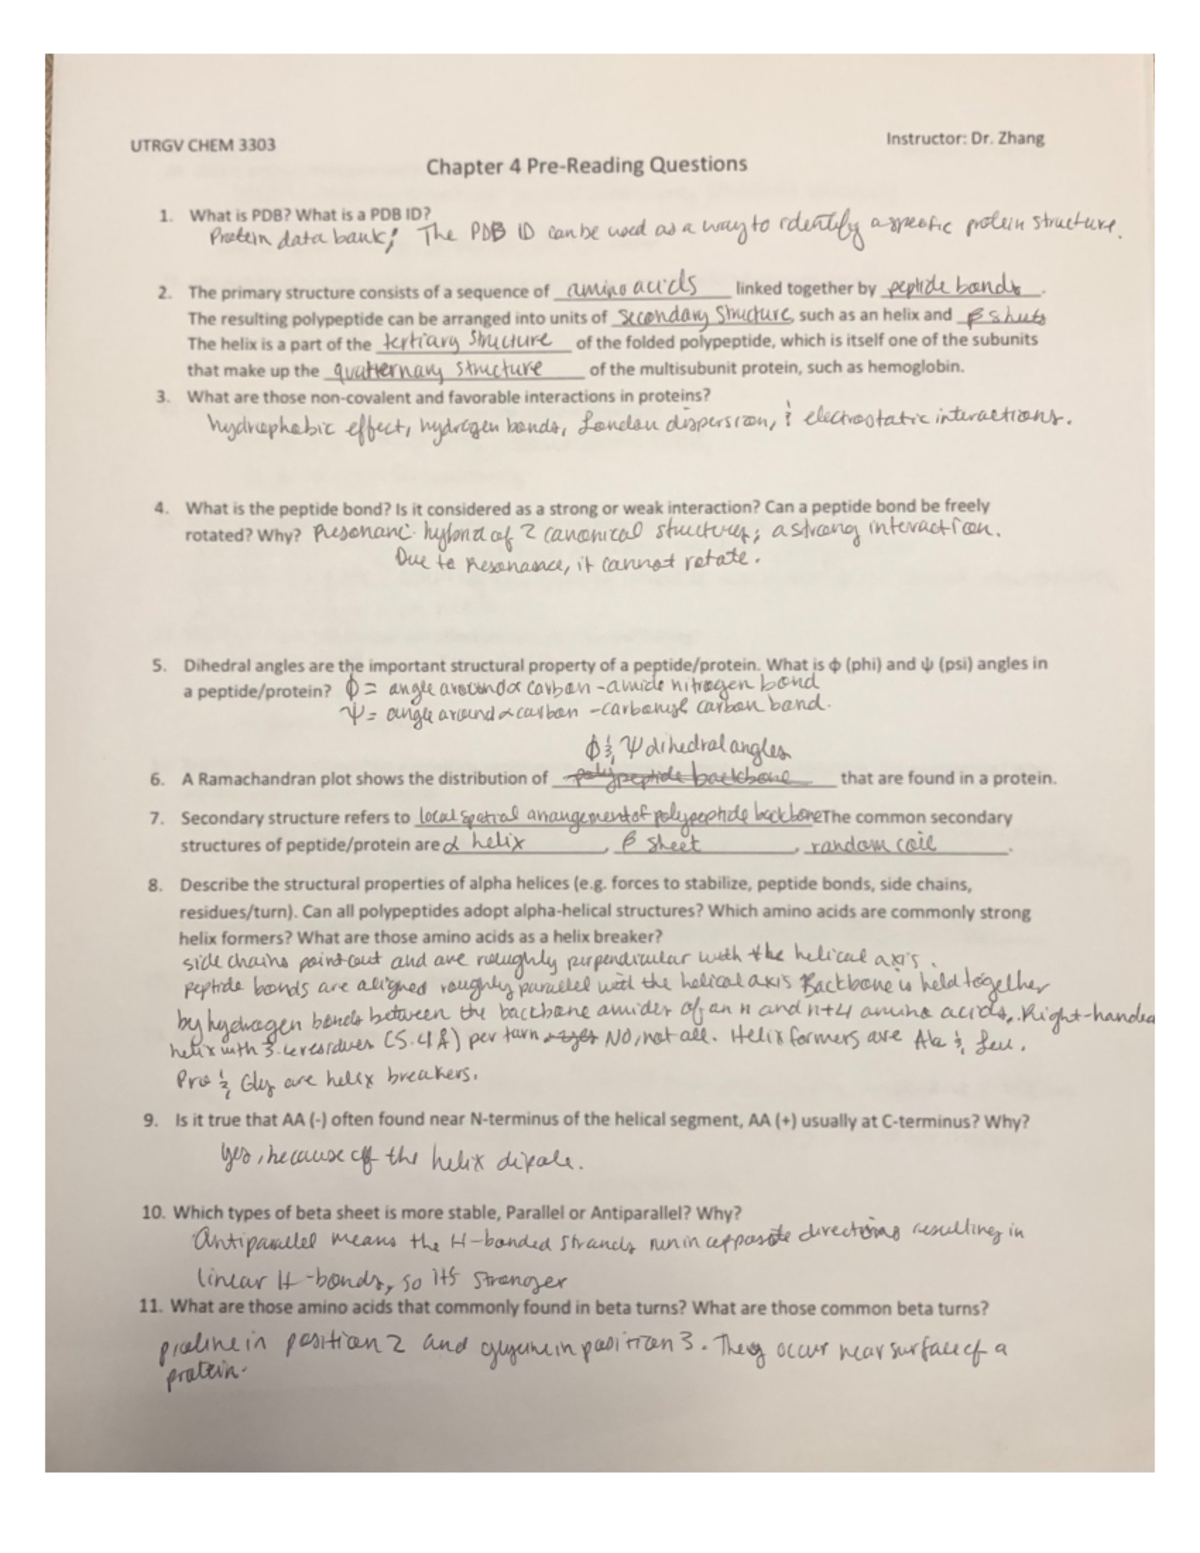 UTRGV CHEM 3303
Instructor: Dr. Zhang
Chapter 4 Pre-Reading Questions
1. What is PDB? What is a PDB ID?
Protein data bank; The PDB ID can be used as a way to identify a specific protein structure.
2. The primary structure consists of a sequence of amino acids linked together by peptide bonds.
The resulting polypeptide can be arranged into units of secondary structure, such as an helix and β sheets
The helix is a part of the tertiary structure of the folded polypeptide, which is itself one of the subunits
that make up the quatternary structure of the multisubunit protein, such as hemoglobin.
3. What are those non-covalent and favorable interactions in proteins?
hydrophobic effect, hydrogen bonds, London dispersion, & electrostatic interactions.
4. What is the peptide bond? Is it considered as a strong or weak interaction? Can a peptide bond be freely
rotated? Why? Resonanc hybrid of 2 canonical structures; a strong interaction.
Due to resonance, it cannot rotate.
5. Dihedral angles are the important structural property of a peptide/protein. What is ϕ (phi) and ψ (psi) angles in
a peptide/protein? Φ = angle around α carbon - amide nitrogen bond
Ψ = angle around α carbon - carbonyl carbon bond.
Φ & Ψ dihedral angles
6. A Ramachandran plot shows the distribution of polypeptide backbone that are found in a protein.
7. Secondary structure refers to local spatial arrangement of polypeptide backbone The common secondary
structures of peptide/protein are α helix, β sheet, random coil.
8. Describe the structural properties of alpha helices (e.g. forces to stabilize, peptide bonds, side chains,
residues/turn). Can all polypeptides adopt alpha-helical structures? Which amino acids are commonly strong
helix formers? What are those amino acids as a helix breaker?
side chains point out and are roughly perpendicular with the helical axis.
peptide bonds are aligned roughly parallel with the helical axis Backbone is held together
by hydrogen bonds between the backbone amides of an n and n+4 amino acids. Right-handed
helix with 3.6 residues (5.4 Å) per turn No, not all. Helix formers are Ala & Leu.
Pro & Gly are helix breakers.
9. Is it true that AA (-) often found near N-terminus of the helical segment, AA (+) usually at C-terminus? Why?
Yes, because of the helix dipole.
10. Which types of beta sheet is more stable, Parallel or Antiparallel? Why?
Antiparallel means the H-bonded strands run in opposite directions resulling in
linear H-bonds, so it's stronger
11. What are those amino acids that commonly found in beta turns? What are those common beta turns?
proline in position 2 and glycine in position 3. They occur near surface of a
protein.